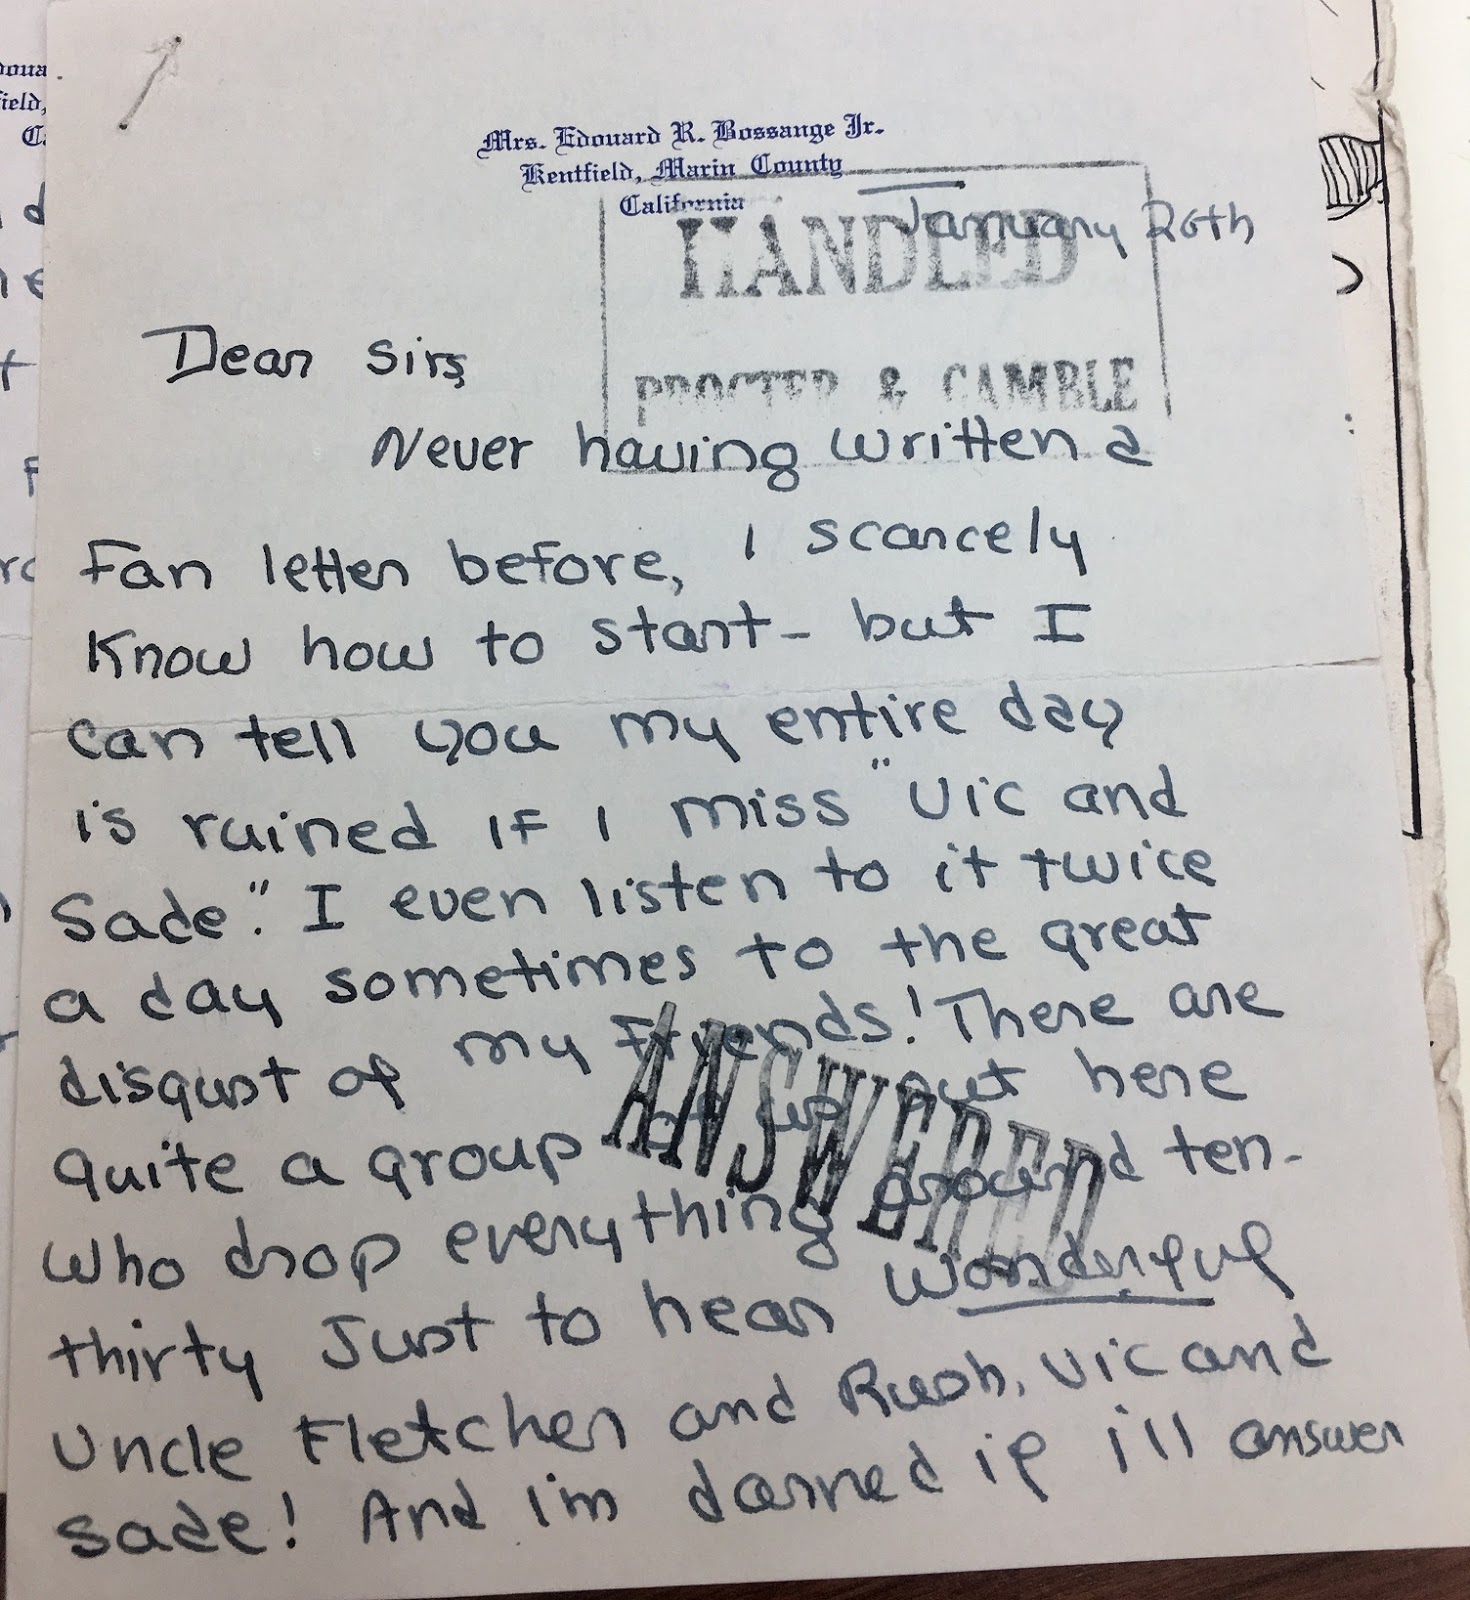 Mrs. Edouard R. Bossange Jr.
Kentfield, Marin County
California
HANDLED
PROCTER & GAMBLE
January 20th
Dear Sirs,
Never having written a
Fan letter before, I scarcely
Know how to start - but I
can tell you my entire day
is ruined if I miss "Vic and
Sade". I even listen to it twice
a day sometimes to the great
disgust of my Friends! There are
quite a group of us out here
ANSWERED
who drop everything around ten-
thirty Just to hear wonderful
Uncle Fletcher and Rush, Vic and
Sade! And I'm darned if i'll answer